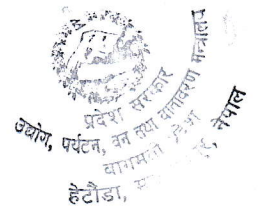 प्रदेश सरकार
उद्योग, पर्यटन, वन तथा वातावरण मन्त्रालय
बागमती प्रदेश
हेटौंडा, नेपाल